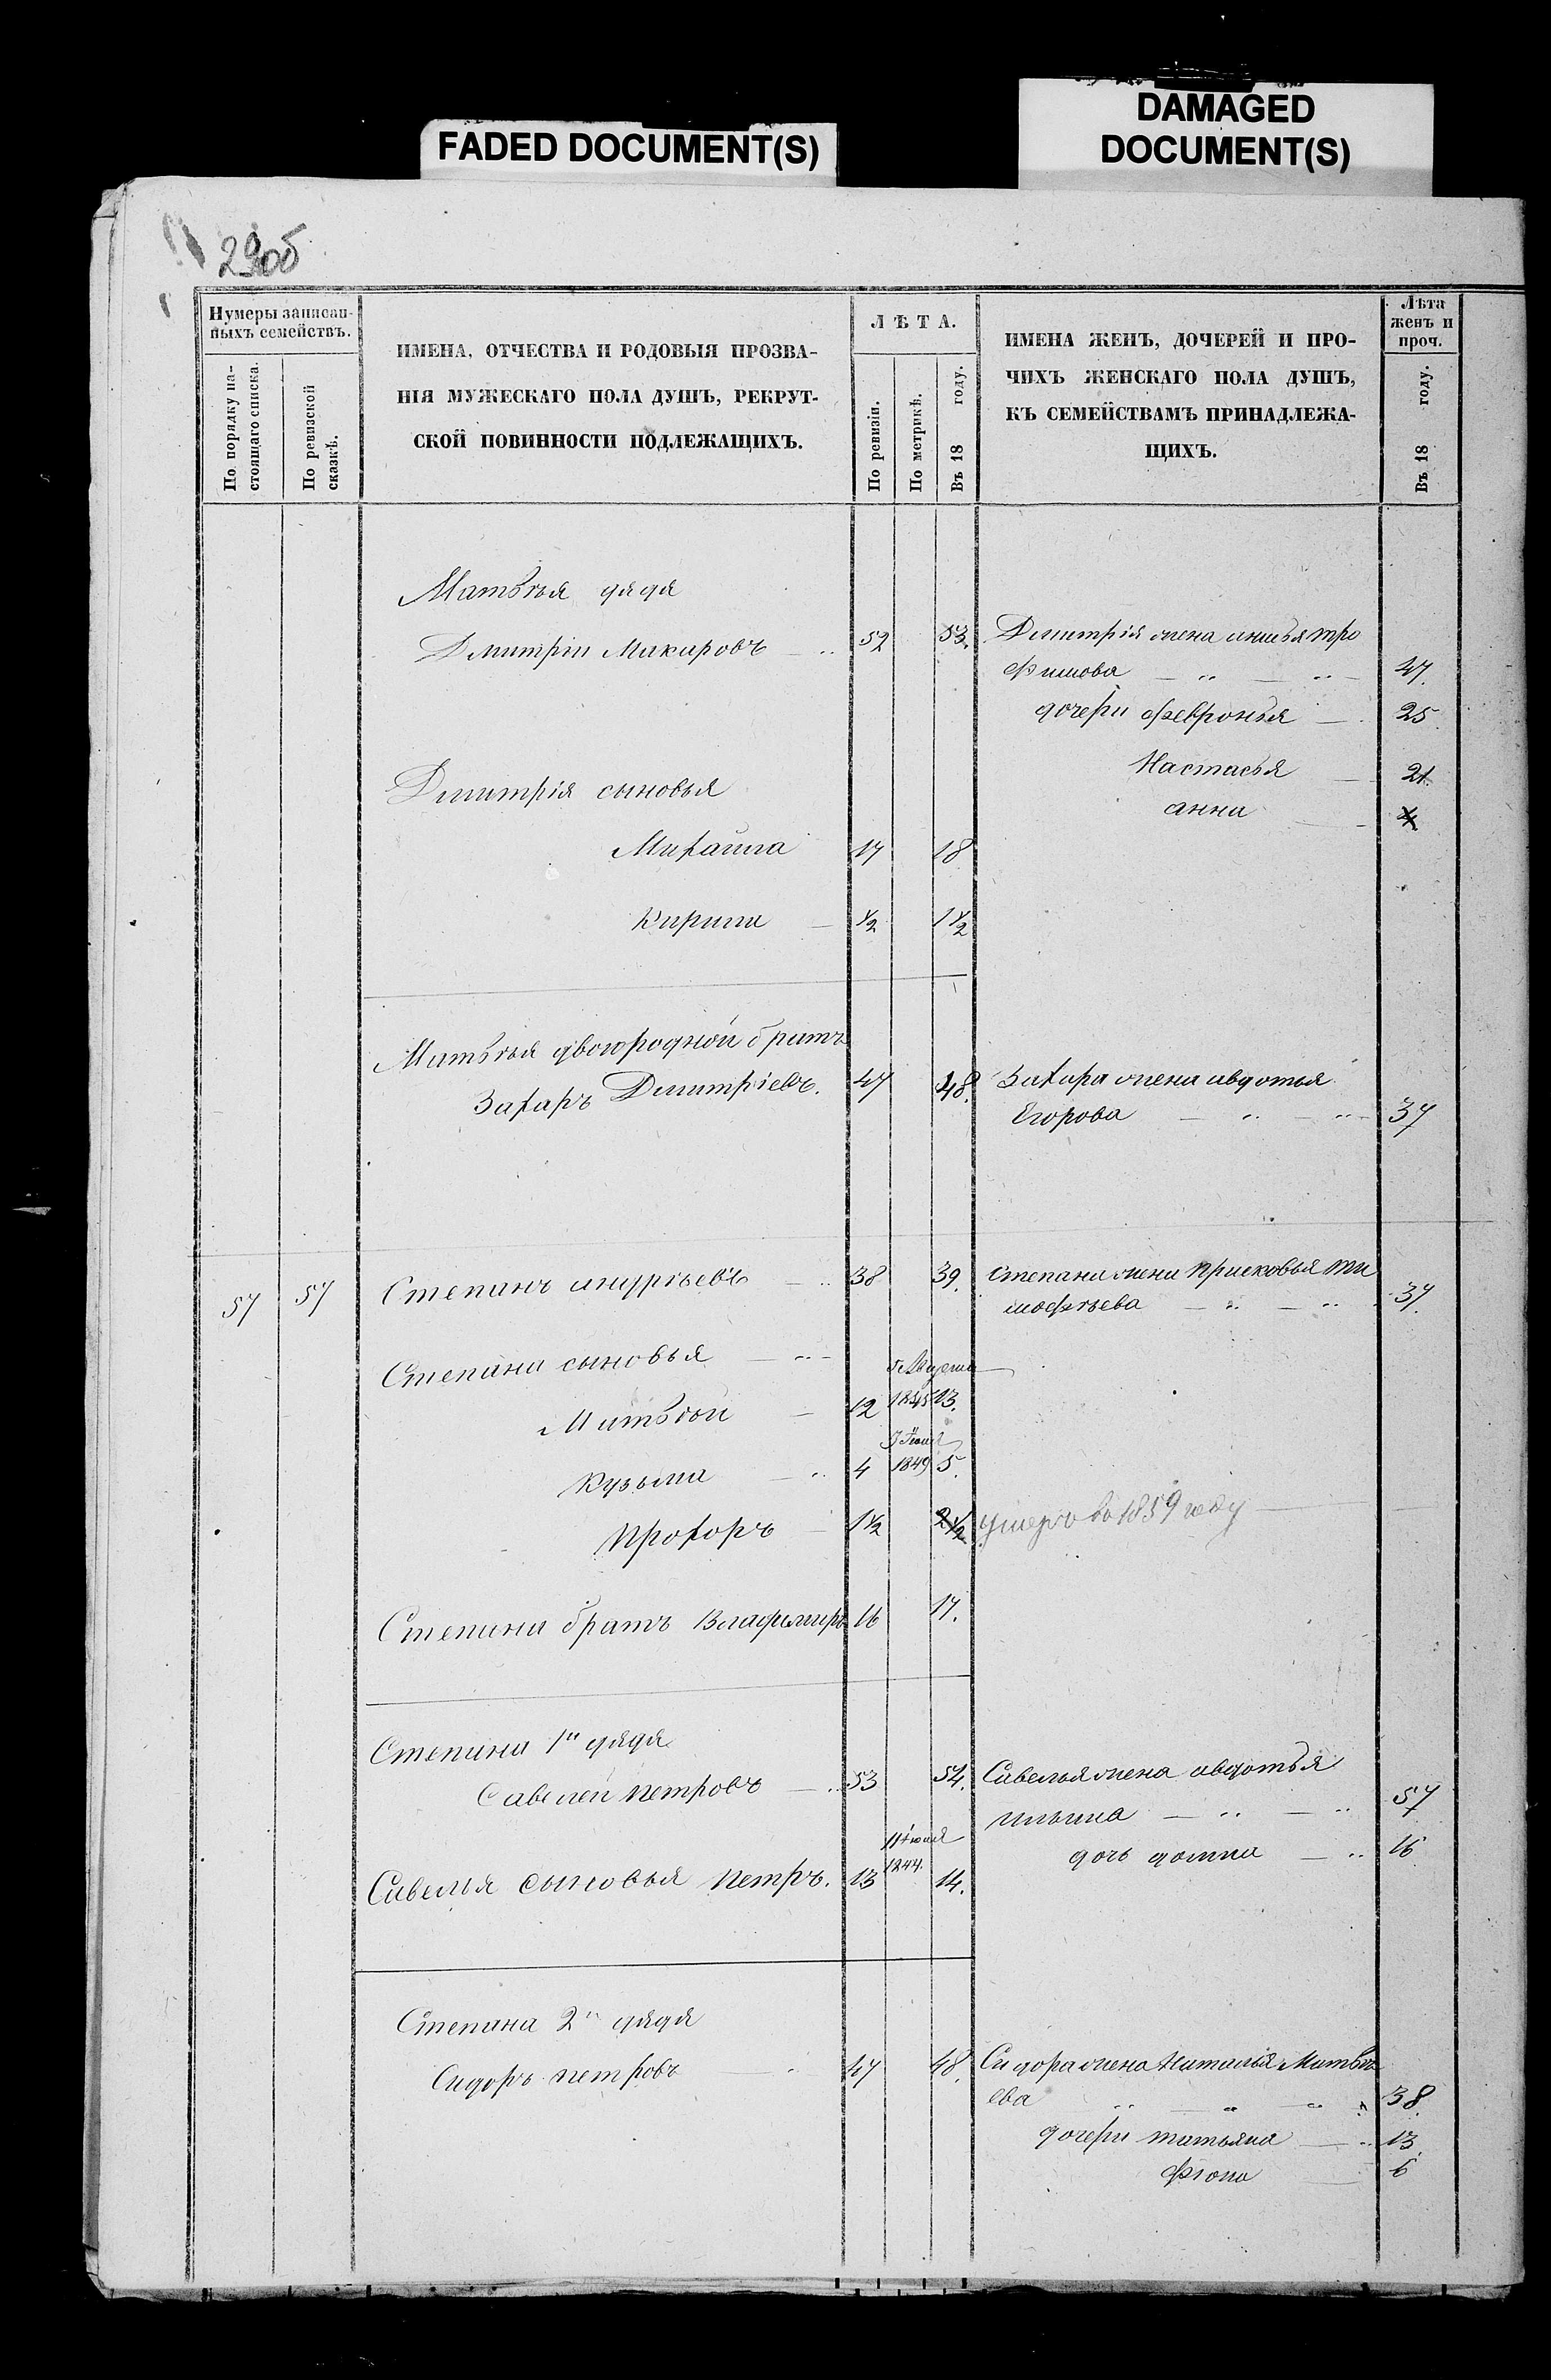 FADED DOCUMENT(S)
DAMAGED
DOCUMENT(S)
29об
Нумеры записан-
ныхъ семействъ.
По порядку на-
стоящаго списка.
По ревизской
сказкѣ.
ИМЕНА, ОТЧЕСТВА И РОДОВЫЯ ПРОЗВА-
НІЯ МУЖЕСКАГО ПОЛА ДУШЪ, РЕКРУТ-
СКОЙ ПОВИННОСТИ ПОДЛЕЖАЩИХЪ.
ЛѢТА.
По ревизіи.
По метрикѣ.
Въ 18 году.
ИМЕНА ЖЕНЪ, ДОЧЕРЕЙ И ПРО-
ЧИХЪ ЖЕНСКАГО ПОЛА ДУШЪ,
КЪ СЕМЕЙСТВАМЪ ПРИНАДЛЕЖА-
ЩИХЪ.
Лѣта
женъ и
проч.
Въ 18 году.
Матвѣя дядя
Дмитріи Макаровъ 52 53.
Дмитрія жена анисья тро
фимова 47.
дочери февронья 25.
Настасья 21.
анна
Дмитрія сыновья
Михайла 17 18
Кирила ½ 1½
Матвѣя двоюродной братъ
Захаръ Дмитріевъ. 47 48.
Захара жена авдотья
Егорова 37
57 57 Степанъ андріевъ 38 39.
Степана жена прасковья ти
мофѣева 37.
Степана сыновья
Матвѣй 12 5 Августа 1845 13.
Кузьма 4 Июня 1849 5.
Прохоръ 1½ 2½ умеръ въ 1859 году
Степана братъ Владимиръ 16 17.
Степана 1й дядя
Савелей петровъ 53 54.
Савелья жена авдотья
ильина 57
дочь домна 16
Савелья сыновья петръ. 13 11 июня 1844. 14.
Степана 2й дядя
Сидоръ петровъ 47 48.
Сидора жена Наталья Матвѣ
ева 38.
дочери татьяна 13.
фіона 6